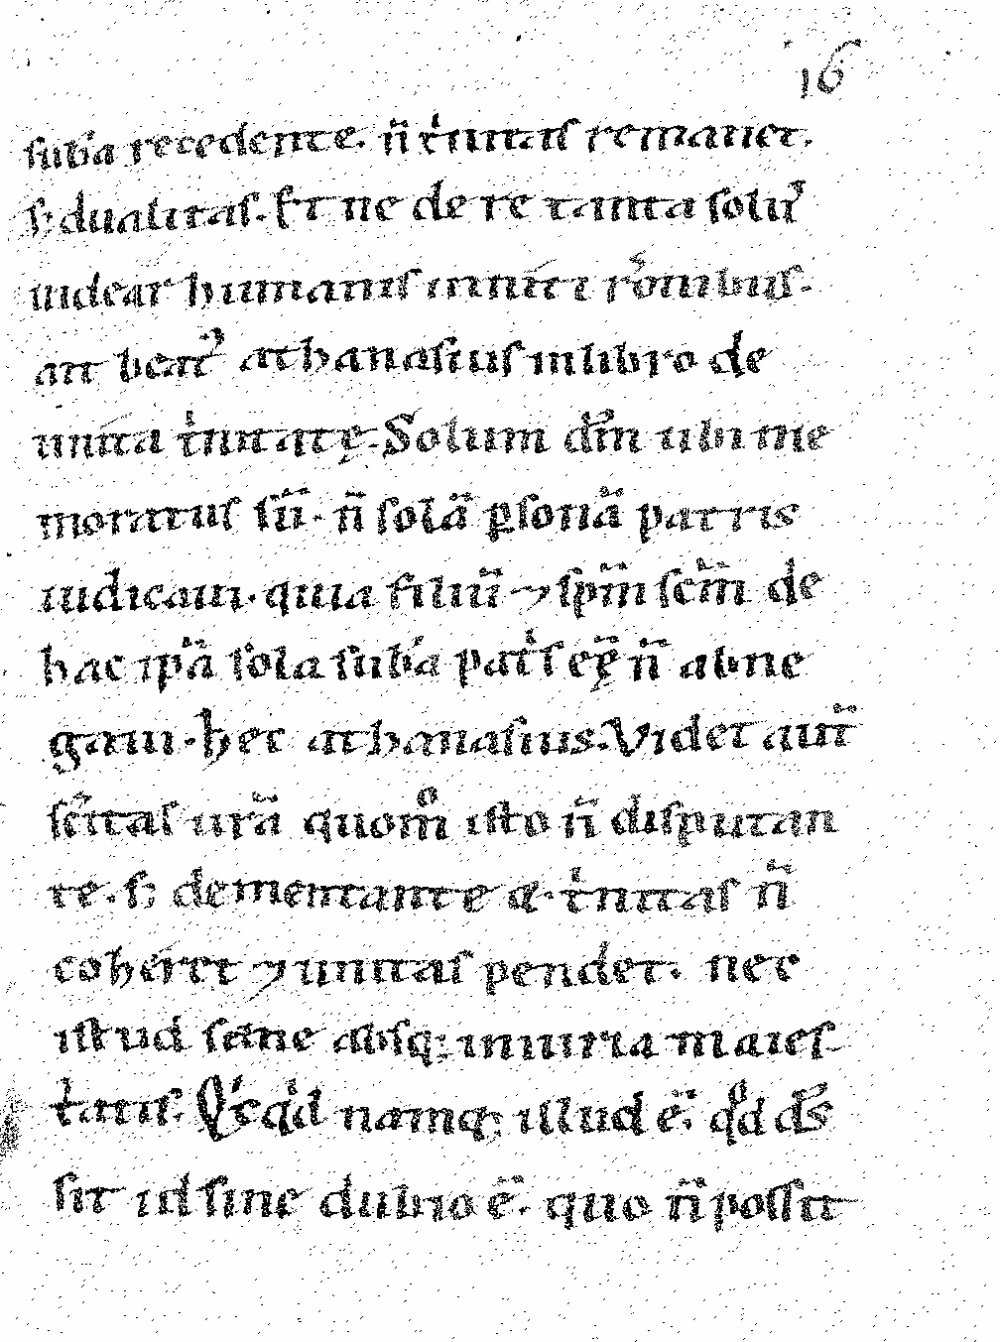 16
suba recedente. n̄ tͥnitas remanet.
s; dualitas. Et ne de re tanta soluꝰ
uidear humanis inniti rōnibus.
ait beatꝰ athanasius in libro de
unita tͥnitatę. Solum dm̄ ubi me
moratus sū. n̄ solā ꝑsonā patris
iudicaui. quia filiū ⁊ spm̄ scm̄ de
hac ipā sola suba patͥs eē n̄ abne
gaui. hec athanasius. Videt aut̄
scītas ur̄a quom̊ isto n̄ disputan
re. s; dementante ⁊ tͥnitas n̄
coheret ⁊ unitas pendet. nec
istud sane absq; iniuria maies
tatis. Qͥcqͥd namq; illud ē. qͦd ds̄
sit id sine dubio ē. quo n̄ possit